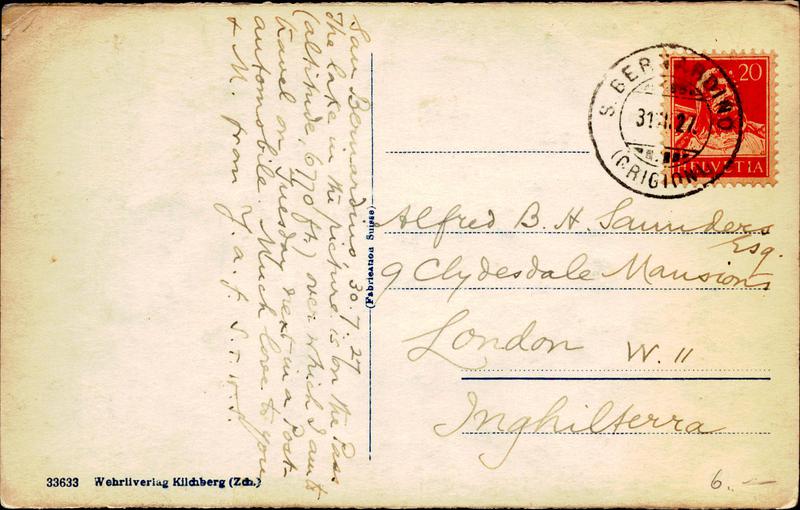 San Bernardino 30.7.27
The lake in the picture is on the Pass
(altitude, 6770 ft.) over which I am to
travel on Tuesday next in a Post-
automobile. Much love to you
& M. from Y. a. f. S. T. W. S.
(Fabrication Suisse)
S. BERNARDINO
(GRIGIONI)
20
HELVETIA
Alfred B. H. Saunders
Esq.
9 Clydesdale Mansions
London W. 11
Inghilterra
33633 Wehrliverlag Kilchberg (Zch.)
6.—